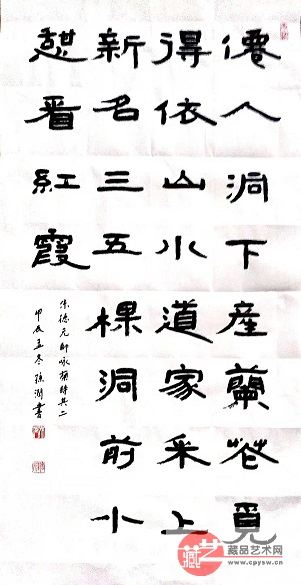 僊人洞下產蘭花覓
得依山小道家采上
新名三五棵洞前小
憩看紅霞
朱德元帥咏蘭詩其二
甲辰孟冬 書
藏品艺术网
www.cpysw.cn